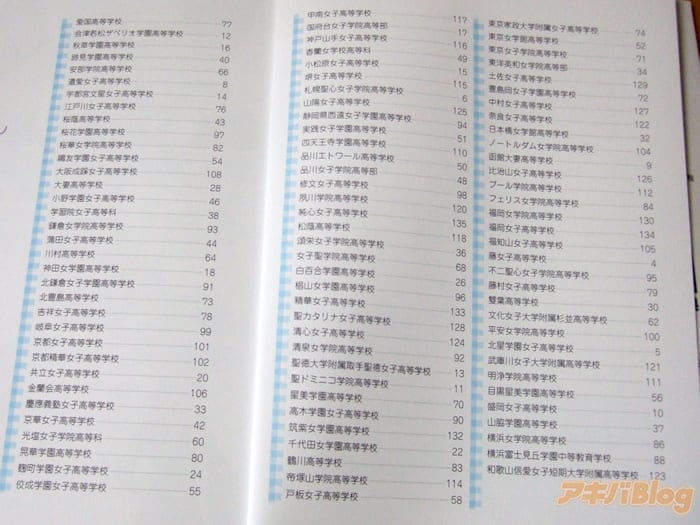 愛国高等学校 77
会津若松ザベリオ学園高等学校 12
秋草学園高等学校 16
跡見学園高等学校 40
安部学院高等学校 66
遺愛女子高等学校 8
宇都宮文星女子高等学校 14
江戸川女子高等学校 76
桜蔭高等学校 43
桜花学園高等学校 97
桜華女学院高等学校 82
鷗友学園女子高等学校 54
大阪成蹊女子高等学校 108
大妻高等学校 28
小野学園女子高等学校 46
学習院女子高等科 38
鎌倉女学院高等学校 93
蒲田女子高等学校 44
川村高等学校 64
神田女学園高等学校 18
北鎌倉女子学園高等学校 91
北豊島高等学校 73
吉祥女子高等学校 78
岐阜女子高等学校 99
京都女子高等学校 101
京都精華女子高等学校 102
共立女子高等学校 20
金蘭会高等学校 106
慶應義塾女子高等学校 33
京華女子高等学校 42
光塩女子学院高等科 60
晃華学園高等学校 80
麹町学園女子高等学校 24
佼成学園女子高等学校 55
甲南女子高等学校 117
国府台女子学院高等部 17
神戸山手女子高等学校 116
香蘭女学校高等科 49
小松原女子高等学校 15
堺女子高等学校 115
札幌聖心女子学院高等学校 6
山陽女子高等学校 125
静岡県西遠女子学園高等学校 94
実践女子学園高等学校 51
四天王寺学園高等学校 110
品川エトワール高等学校 50
品川女子学院高等部 48
修文女子高等学校 98
夙川学院高等学校 120
純心女子高等学校 135
松蔭高等学校 118
頌栄女子学院高等学校 36
女子聖学院高等学校 68
白百合学園高等学校 26
椙山女学園高等学校 96
精華女子高等学校 133
聖カタリナ女子高等学校 128
清心女子高等学校 124
清泉女学院高等学校 92
聖徳大学附属取手聖徳女子高等学校 13
聖ドミニコ学院高等学校 11
星美学園高等学校 70
高木学園女子高等学校 90
筑紫女学園高等学校 132
千代田女学園高等学校 22
鶴川高等学校 83
帝塚山学院高等学校 114
戸板女子高等学校 58
東京家政大学附属女子高等学校 74
東京女学館高等学校 52
東京女子学院高等学校 71
東洋英和女学院高等部 34
土佐女子高等学校 129
豊島岡女子学園高等学校 72
中村高等学校 127
奈良女子高等学校 122
日本橋女学館高等学校 32
ノートルダム女学院高等学校 104
函館大妻高等学校 9
比治山女子高等学校 126
プール学院高等学校 112
フェリス女学院高等学校 84
福岡女学院高等学校 130
福岡女子高等学校 134
福知山女子高等学校 105
藤女子高等学校 4
不二聖心女子学院高等学校 95
藤村女子高等学校 79
雙葉高等学校 30
文化女子大学附属杉並高等学校 62
平安女学院高等学校 100
北星学園女子高等学校 5
武庫川女子大学附属高等学校 121
明浄学院高等学校 111
目黒星美学園高等学校 56
盛岡女子高等学校 10
山脇学園高等学校 37
横浜女学院高等学校 86
横浜富士見丘学園中等教育学校 88
和歌山信愛女子短期大学附属高等学校 123
アキバBlog